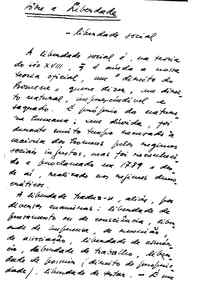 a Liberdade
- liberdade social
A liberdade social é, na teoria
do séc XVIII, q é ainda a nossa
teoria oficial, um "direito do
homem", quer dizer, um direi-
to natural, imprescindível e
sagrado. É próprio da nature-
za humana; sem dúvida, foi
durante muito tempo recusado à
maioria dos homens pelos regimes
sociais injustos, mas foi reconhecido
e proclamado em 1789 e, des-
de aí, realizado nos regimes demo-
cráticos.
A liberdade traduz-se, aliás, por
diversas maneiras: liberdade de
pensamento ou de consciência, liber-
dade de imprensa, de reunião,
de associação, liberdade de
liberdade de trabalho, liber-
dade de possuir (direito de proprie-
dade), liberdade de